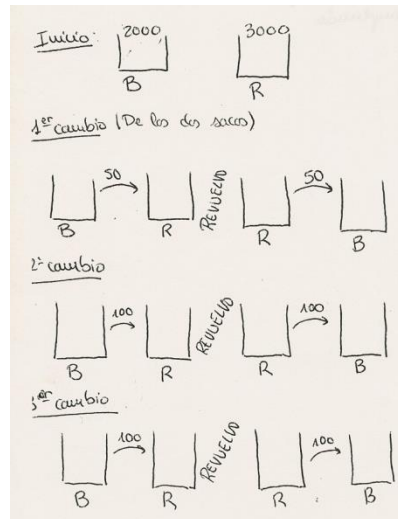 Inicio: 2000 3000
B R
1er cambio (De los dos sacos)
50 REVUELVO 50
B R R B
2º cambio
100 REVUELVO 100
B R R B
3er cambio
100 REVUELVO 100
B R R B